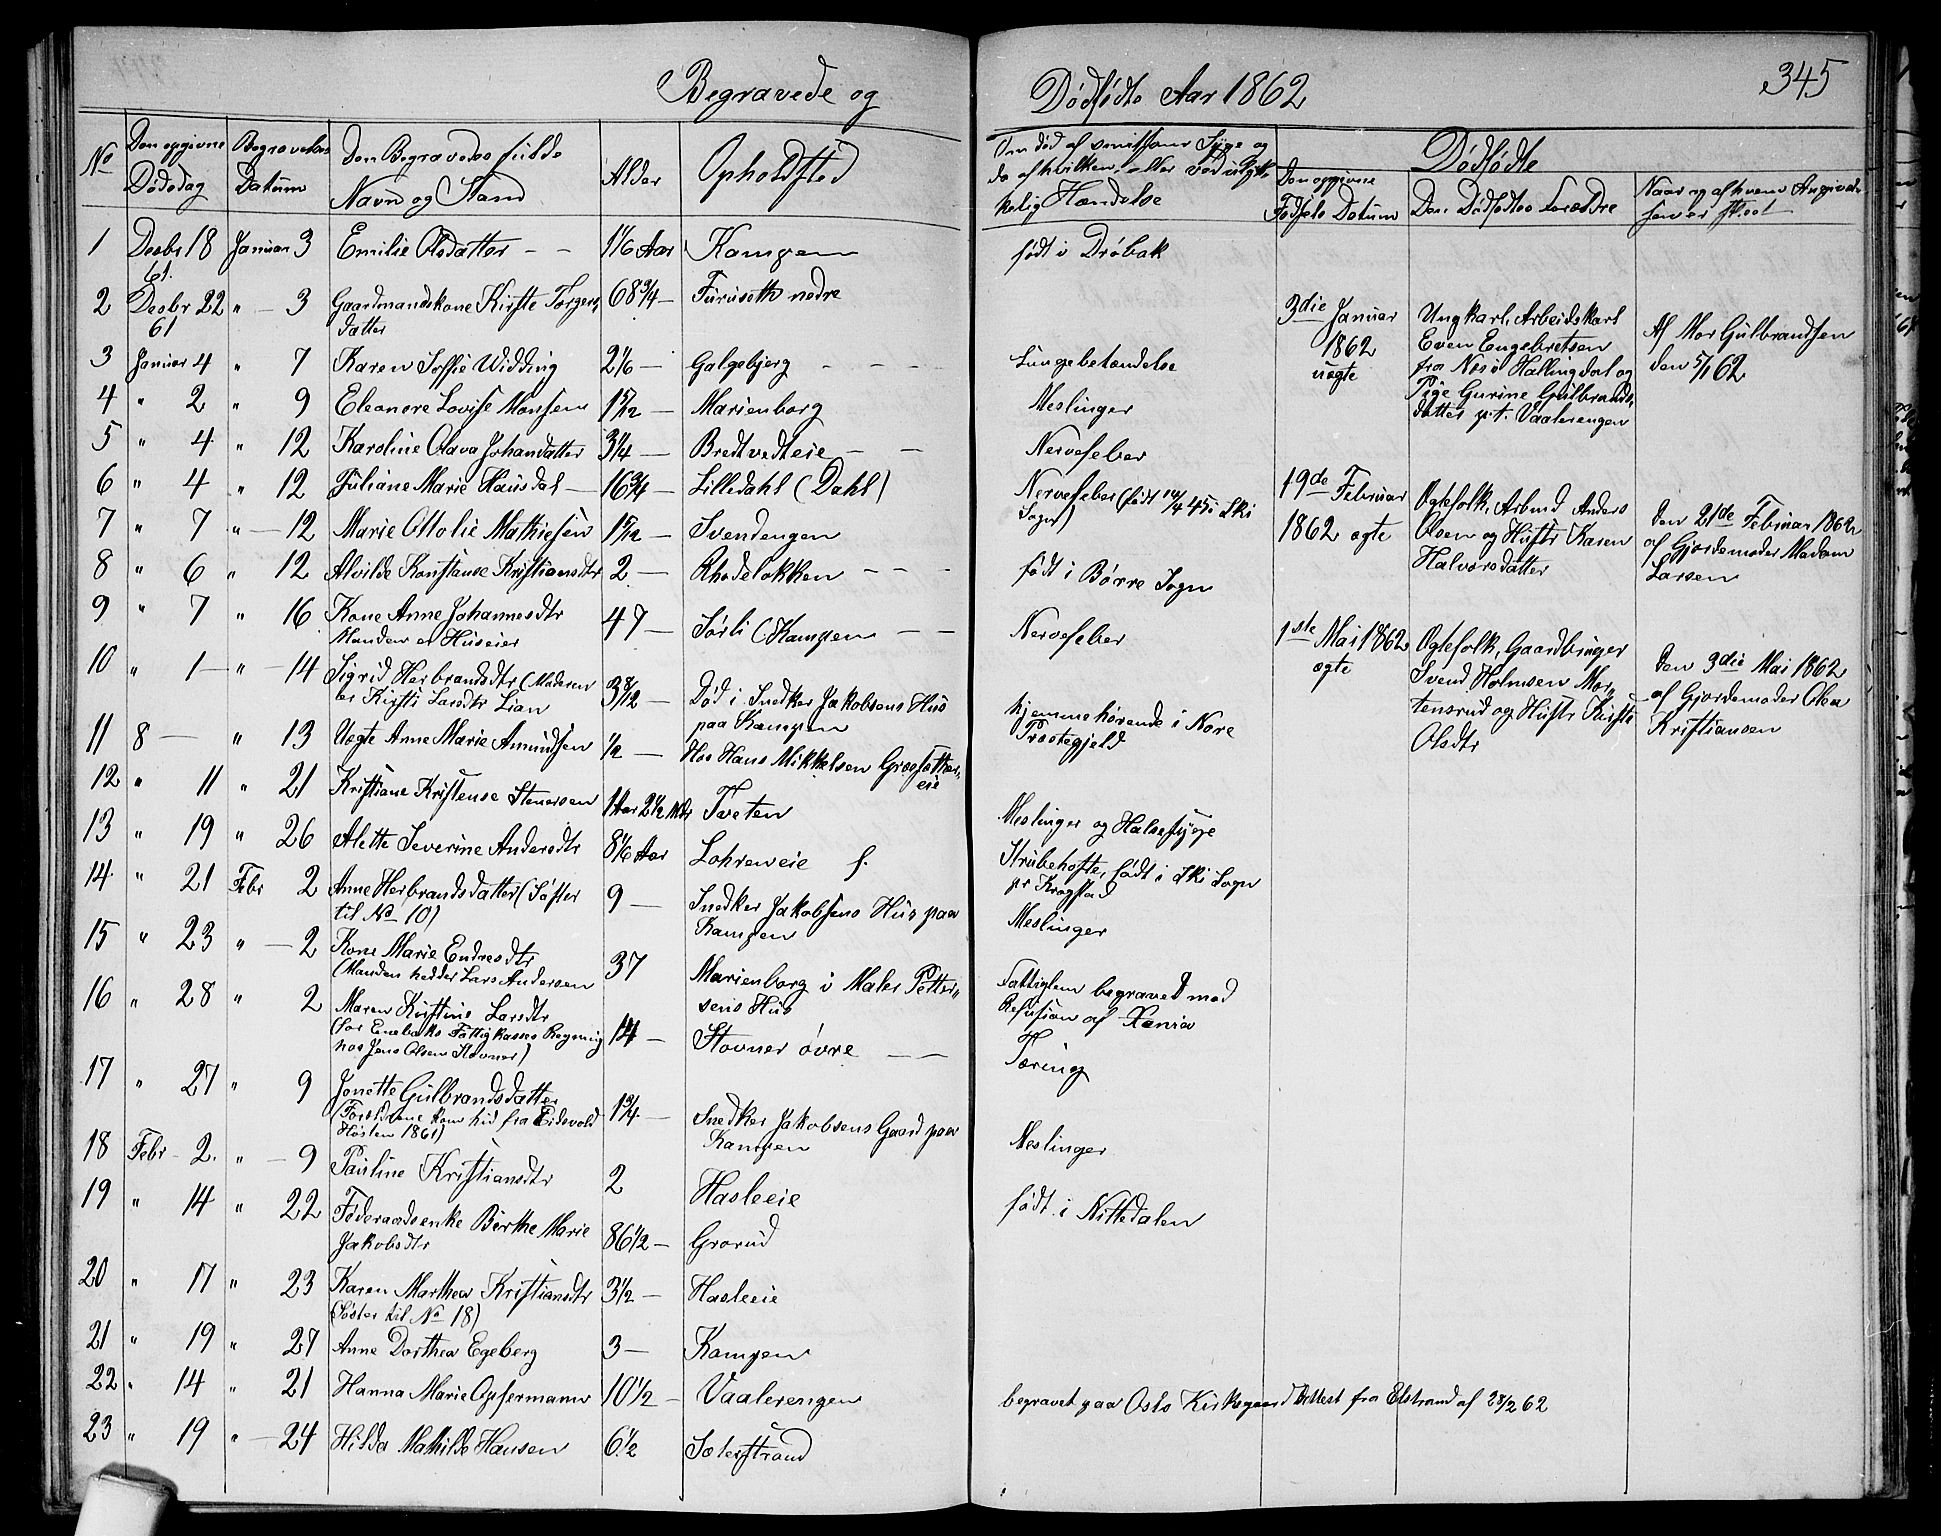 Begravede og
Dødfødte Aar 1862
345
No
Den opgivne Dødsdag
Begravelses Datum
Den Begravedes fulde Navn og Stand
Alder
Opholdsted
Om død af smitsom Syge og
da af hvilken, eller ved ulyk-
kelig Hændelse
Dødfødte
Den opgivne Fødsels Datum
Den Dødfødtes Forældre
Naar og af hvem Angivel-
sen er skeet
1 Decbr 18 61. Januar 3 Emilie Olsdatter - - 1 1/6 Aar Kampen født i Drøbak
2 Decbr 22 61 " - 3 Gaardmandskone Kirste Torgers- 68 3/4 - Furuseth nedre
datter
3 Januar 4 " 7 Karen Soffie Widding 2 1/6 - Galgebjerg - - - Lungebetændelse
4 " 2 " 9 Eleanore Lovise Monsen 1 5/12 - Marienborg Meslinger
5 " 4 " 12 Karoline Olava Johansdatter 3 1/4 - Bredtvedteie - - Nervefeber
6 " 4 " 12 Juliane Marie Hausdal - 16 3/4 - Lilledahl (Dahl) Nervefeber (født 14/4 45 i Ski
Sogn)
7 " 7 " - 12 Marie Ottolie Mathiesen 1 5/12 - Svendengen
8 " 6 " 12 Alvilde Konstanse Kristiansdtr 2 - Rhodeløkken - - - født i Børre Sogn
9 " 7 " 16 Kone Anne Johannesdtr 47 - Sørli (Kampen - - Nervefeber
Manden er Huseier
10 " 1 - " - 14 Sigrid Herbrandsdtr (Moderen 3 8/12 - Død i Snedker Jakobsens Hus
er Kirsti Larsdtr Lian paa Kampen hjemmehørende i Nore
Præstegjeld
11 8 - " 13 Uegte Anne Marie Amundsen 1/2 - Hos Hans Mikkelsen Græsætter-
eie
12 " 11 " 21 Kristiane Kristense Stenersen 1 Aar 2 1/2 Mdr Tveten Meslinger og Halssyge
13 " 19 " 26 Alette Severine Andersdtr 8 1/6 Aar Lohreneie f. Strubehoste, født i Ski Sogn
pr Kragstad
14. " 21 Febr 2 Anne Herbrandsdatter (Søster 9 - Snedker Jakobsens Hus paa
til No 10) Kampen Meslinger
15 " 23 " - 2 Kone Marie Endresdtr 37 Marienborg i Maler Petter-
(Manden hedder Lars Andersen sens Hus Fattiglem begravet mod
Refusion af Xania
16 " 28 " 2 Maren Kristine Larsdtr 14 - Stovner øvre - - Tæring
(for Enebaks Fattigkasses Regning
hos Jens Olsen Stovner)
17 " 27 " 9 Jonette Gulbrandsdatter 1 3/4 - Snedker Jakobsens Gaard paa
(Forældrene kom hid fra Eidsvold Kampen Meslinger
Høsten 1861)
18 Febr - 2. " - 9 Pauline Kristiansdtr 2 Hasleeie
19 " 14 " 22 Føderaadsenke Birthe Marie 86 1/2 - Grorud født i Nittedalen
Jakobsdtr
20 " 17 " 23 Karen Marthea Kristiansdtr 3 1/2 - Hasleeie
(Søster til No 18)
21 " 19 " 27 Anne Dorthea Egeberg 3 - Kampen
22 " 14 " 21 Hanna Marie Opfermann 10 1/2 - Vaalerengen begravet paa Oslo Kirkegaard Attest fra Elstrand af 28/2 62
23 " 19 " - 24 Hilda Mathilde Hansen 6 1/2 Sæterstrand
3die Januar
1862
uegte
Ungkarl, Arbeidskarl
Even Engebretsen
fra Næs i Hallingdal og
Pige Gurine Gulbrands-
datter p.t. Vaalerengen
Af Mor Gulbrandsen
den 5/1 62
19de Februar
1862 ægte
Ægtefolk, Arbmd Anders
Olsen og Hustr Karen
Halvorsdatter
Den 21de Februar 1862
af Gjordemoder Madam
Larsen
1ste Mai 1862
ægte
Ægtefolk, Gaardbruger
Svend Holmsen Mor-
tensrud og Hustr Kirsti
Olsdtr
Den 3die Mai 1862
af Gjordemoder Olea
Kristiansen